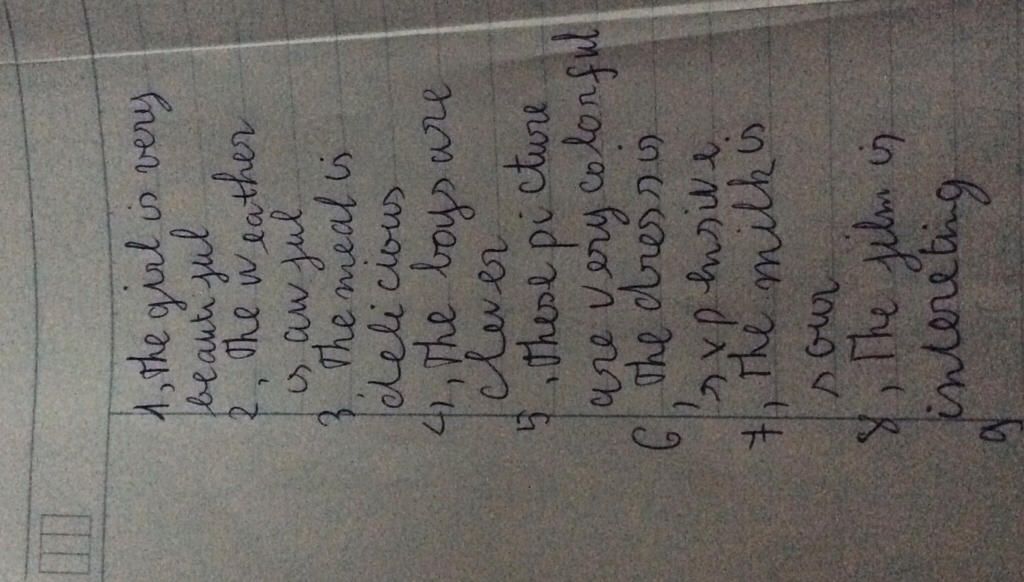 1, The girl is very
beautiful
2, The weather
is awful
3, The meal is
delicious
4, The boys are
clever
5, These picture
are very colorful
6, The dress is
expensive
7, The milk is
sour
8, The film is
intereting
9